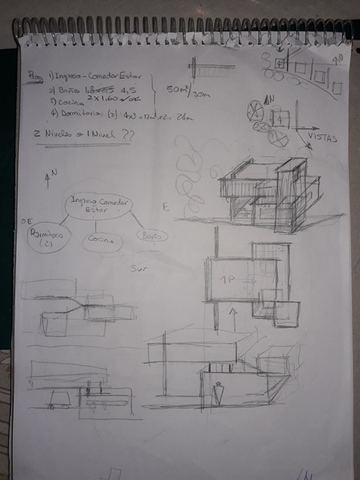 Prog. 1) Ingreso-Comedor Estar
2) Baño 4,5
3) Cocina 2 x 1,60
4) Dormitorios (2)
50m²/30m
2 Niveles o 1 Nivel ??
N
VISTAS
N
Ingreso Comedor
Estar
E
OE
Dormitorio
(2)
Cocina
Baño
Sur
1P